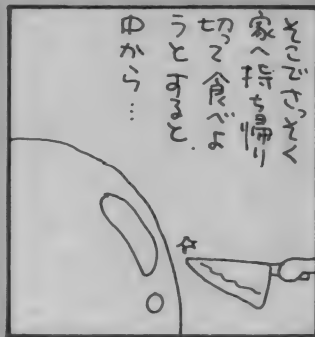 そこでさっそく
家へ持ち帰り
切って食べよ
うとすると、
中から…